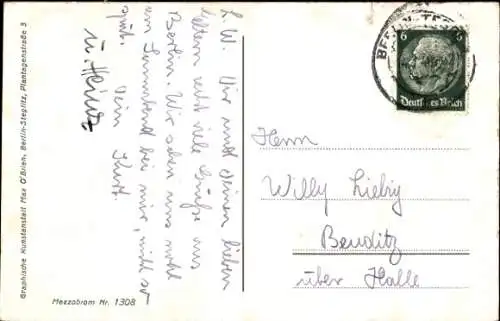 Graphische Kunstanstalt Max O'Brien, Berlin-Steglitz, Plantagenstraße 3
L. W. Dir und Deinen lieben
Eltern recht viele Grüße aus
Berlin. Wir sehen uns wohl
am Sonnabend bei mir, nicht so
spät. Dein Kurt.
u. Heinz
Mezzobrom Nr. 1308
6 6
Deutsches Reich
Herrn
Willy Liebig
Benditz
über Halle